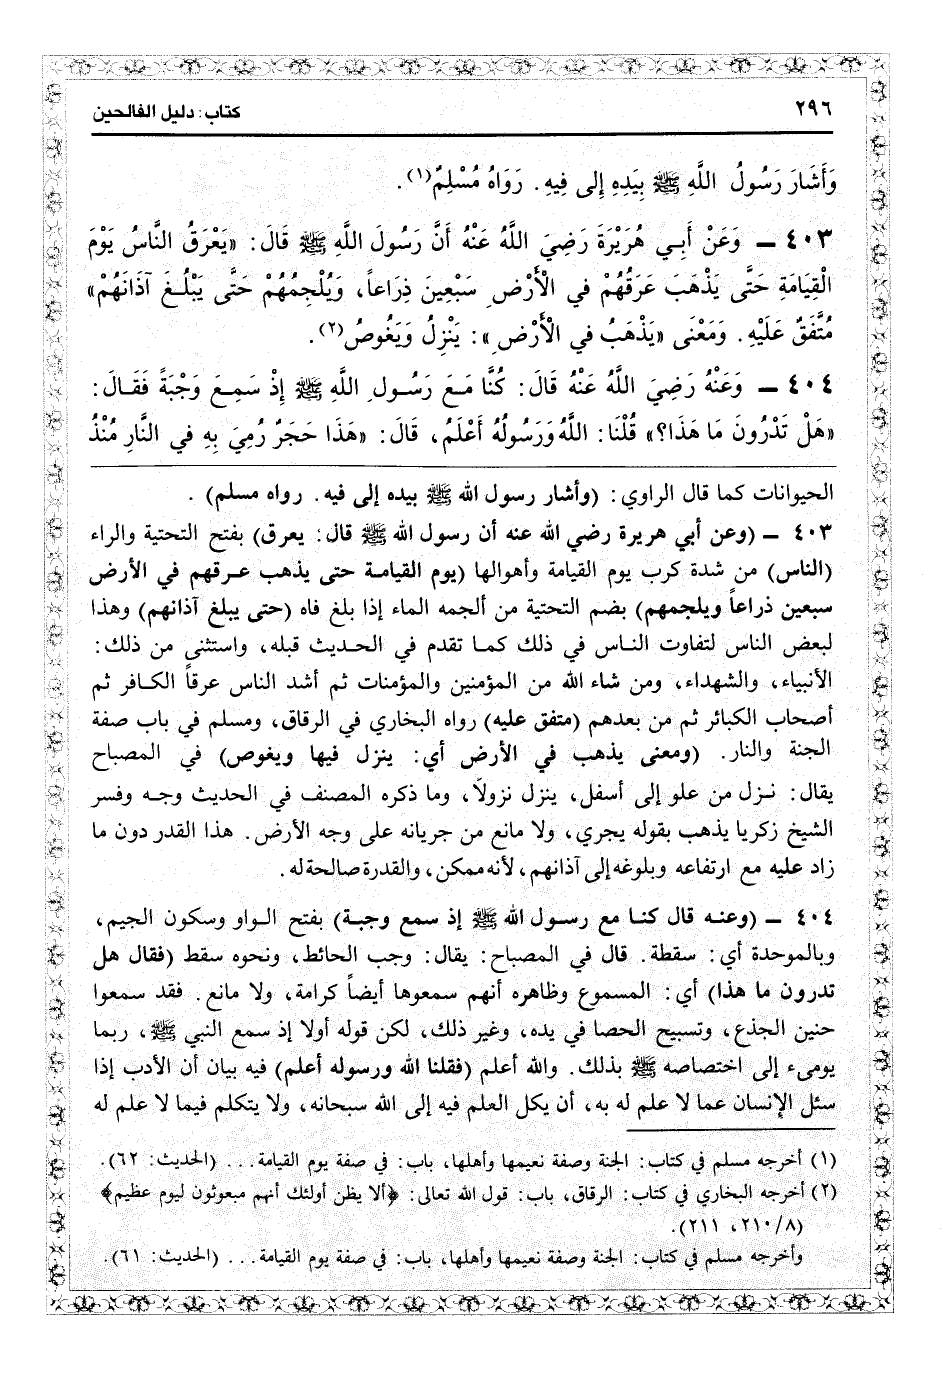 ٢٩٦
كتاب: دليل الفالحين
وَأَشَارَ رَسُولُ اللَّهِ ﷺ بِيَدِهِ إلى فِيهِ. رَوَاهُ مُسْلِمٌ(١).
٤٠٣ ــ وَعَنْ أَبِي هُرَيْرَةَ رَضِيَ اللَّهُ عَنْهُ أَنَّ رَسُولَ اللَّهِ ﷺ قَالَ: «يَعْرَقُ النَّاسُ يَوْمَ
الْقِيَامَةِ حَتَّى يَذْهَبَ عَرَقُهُمْ في الْأَرْضِ سَبْعِينَ ذِرَاعاً، وَيُلْجِمُهُمْ حَتَّى يَبْلُغَ آذَانَهُمْ»
مُتَّفَقٌ عَلَيْهِ. وَمَعْنَى «يَذْهَبُ في الْأَرْضِ»: يَنْزِلُ وَيَغُوصُ(٢).
٤٠٤ ــ وَعَنْهُ رَضِيَ اللَّهُ عَنْهُ قَالَ: كُنَّا مَعَ رَسُولِ اللَّهِ ﷺ إذْ سَمِعَ وَجْبَةً فَقَالَ:
«هَلْ تَدْرُونَ مَا هَذَا؟» قُلْنَا: اللَّهُ وَرَسُولُهُ أَعْلَمُ، قَالَ: «هَذَا حَجَرٌ رُمِيَ بِهِ في النَّارِ مُنْذُ
الحيوانات كما قال الراوي: (وأشار رسول الله ﷺ بيده إلى فيه. رواه مسلم) .
٤٠٣ ــ (وعن أبي هريرة رضي الله عنه أن رسول الله ﷺ قال: يعرق) بفتح التحتية والراء
(الناس) من شدة كرب يوم القيامة وأهوالها (يوم القيامة حتى يذهب عرقهم في الأرض
سبعين ذراعاً ويلجمهم) بضم التحتية من ألجمه الماء إذا بلغ فاه (حتى يبلغ آذانهم) وهذا
لبعض الناس لتفاوت الناس في ذلك كما تقدم في الحديث قبله، واستثنى من ذلك:
الأنبياء، والشهداء، ومن شاء الله من المؤمنين والمؤمنات ثم أشد الناس عرقاً الكافر ثم
أصحاب الكبائر ثم من بعدهم (متفق عليه) رواه البخاري في الرقاق، ومسلم في باب صفة
الجنة والنار. (ومعنى يذهب في الأرض أي: ينزل فيها ويغوص) في المصباح
يقال: نزل من علو إلى أسفل، ينزل نزولاً، وما ذكره المصنف في الحديث وجه وفسر
الشيخ زكريا يذهب بقوله يجري، ولا مانع من جريانه على وجه الأرض. هذا القدر دون ما
زاد عليه مع ارتفاعه وبلوغه إلى آذانهم، لأنه ممكن، والقدرة صالحة له.
٤٠٤ ــ (وعنه قال كنا مع رسول الله ﷺ إذ سمع وجبة) بفتح الواو وسكون الجيم،
وبالموحدة أي: سقطة. قال في المصباح: يقال: وجب الحائط، ونحوه سقط (فقال هل
تدرون ما هذا) أي: المسموع وظاهره أنهم سمعوها أيضاً كرامة، ولا مانع. فقد سمعوا
حنين الجذع، وتسبيح الحصا في يده، وغير ذلك، لكن قوله أولا إذ سمع النبي ﷺ، ربما
يومىء إلى اختصاصه ﷺ بذلك. والله أعلم (فقلنا الله ورسوله أعلم) فيه بيان أن الأدب إذا
سئل الإنسان عما لا علم له به، أن يكل العلم فيه إلى الله سبحانه، ولا يتكلم فيما لا علم له
(١) أخرجه مسلم في كتاب: الجنة وصفة نعيمها وأهلها، باب: في صفة يوم القيامة... (الحديث: ٦٢).
(٢) أخرجه البخاري في كتاب: الرقاق، باب: قول الله تعالى: ﴿ألا يظن أولئك أنهم مبعوثون ليوم عظيم﴾
(٢١٠/٨، ٢١١).
وأخرجه مسلم في كتاب: الجنة وصفة نعيمها وأهلها، باب: في صفة يوم القيامة... (الحديث: ٦١).